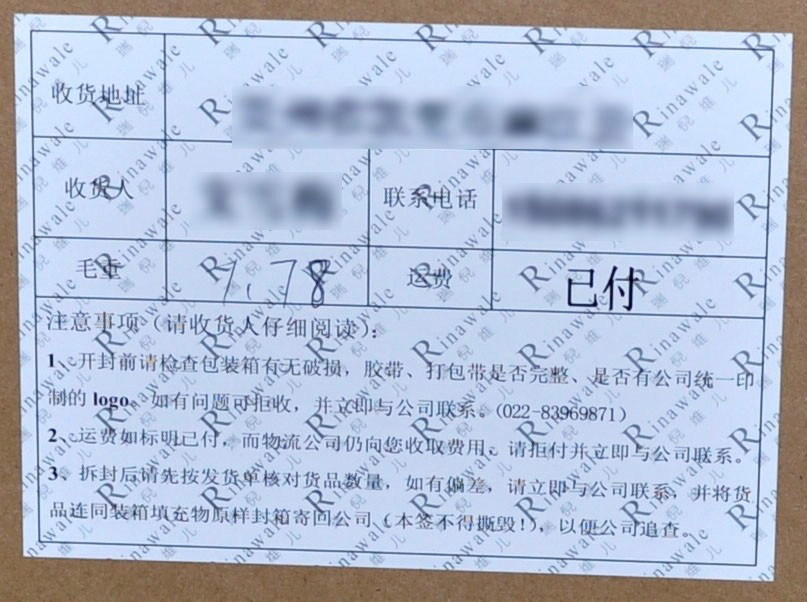 收货地址
收货人
联系电话
毛重
7.78
运费
已付
注意事项（请收货人仔细阅读）：
1、开封前请检查包装箱有无破损，胶带、打包带是否完整、是否有公司统一印
制的 logo。如有问题可拒收，并立即与公司联系。(022-83969871)
2、运费如标明已付，而物流公司仍向您收取费用、请拒付并立即与公司联系。
3、拆封后请先按发货单核对货品数量，如有偏差，请立即与公司联系，并将货
品连同装箱填充物原样封箱寄回公司（本签不得撕毁!），以便公司追查。
Rinawale
瑞倪维儿